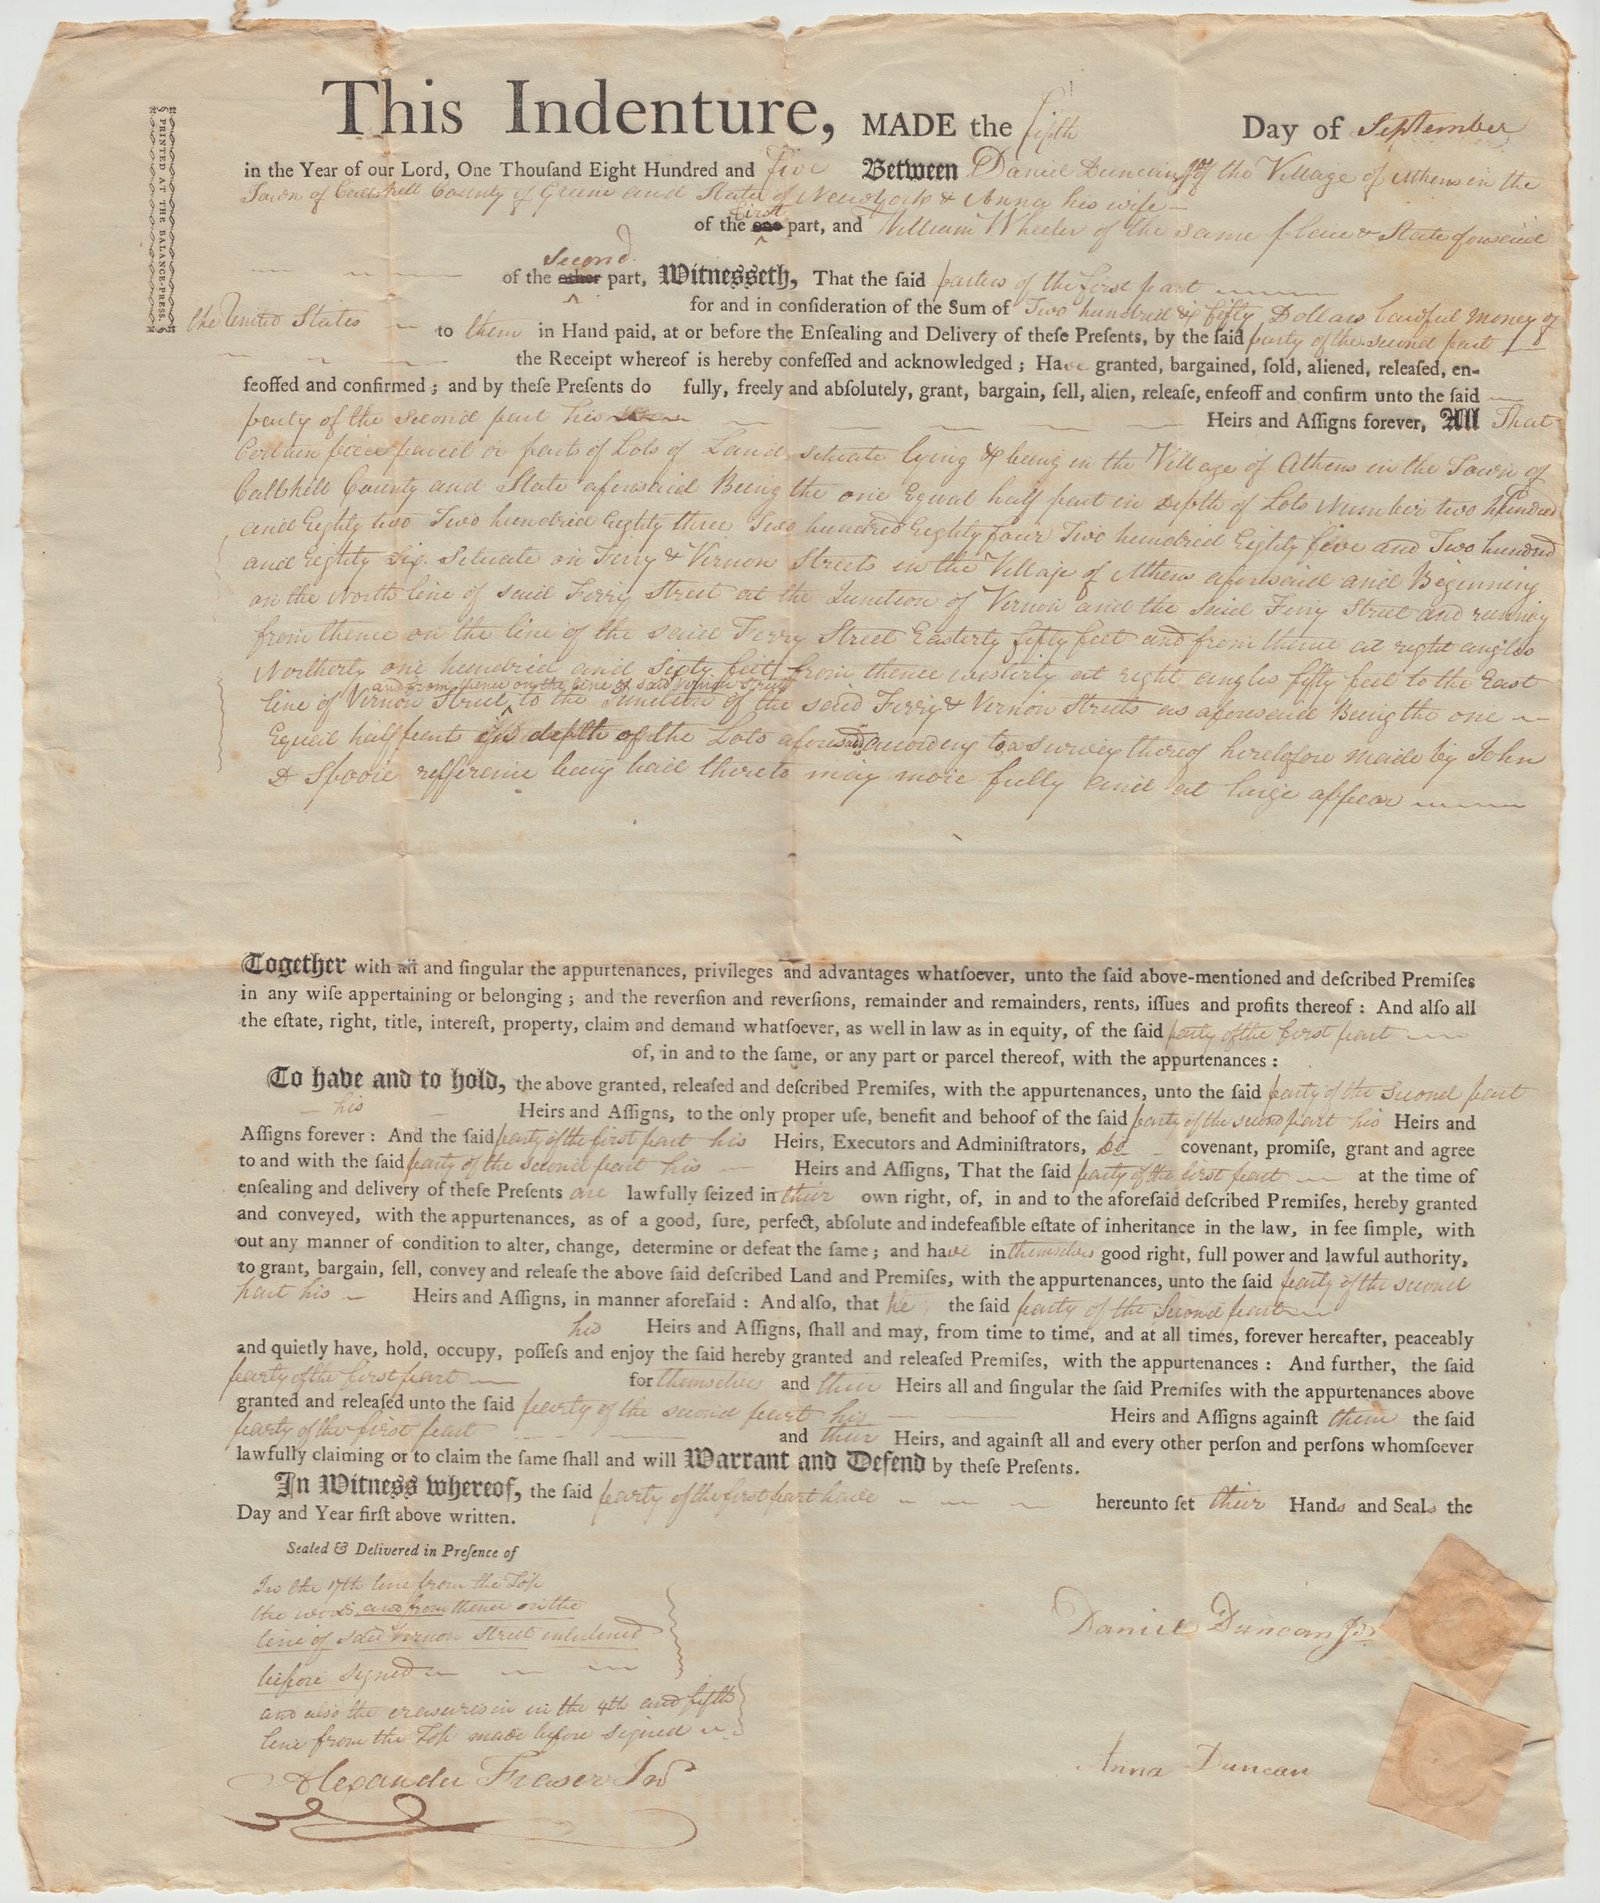 § PRINTED AT THE BALANCE-PRESS. §
This Indenture, MADE the fifth Day of September
in the Year of our Lord, One Thouſand Eight Hundred and Five Between Daniel Duncan Jr of the Village of Athens in the
Town of Cattskill County of Green and State of Newyork & Anna his wife
first
of the one part, and William Wheeler of the same place & State aforesaid
Second
of the other part, Witnesseth, That the ſaid parties of the first part
for and in conſideration of the Sum of Two hundred & fifty Dollars Lawful money of
the United States to them in Hand paid, at or before the Enſealing and Delivery of theſe Preſents, by the ſaid party of the second part
the Receipt whereof is hereby confeſſed and acknowledged ; Have granted, bargained, ſold, aliened, releaſed, en-
feoffed and confirmed ; and by theſe Preſents do fully, freely and abſolutely, grant, bargain, ſell, alien, releaſe, enfeoff and confirm unto the ſaid
party of the second part his Heirs and Aſſigns forever, All That
Certain piece parcel or parts of Lots of Land situate lying & being in the Village of Athens in the Town of
Cattskill County and State aforesaid Being the one Equal half part in Depth of Lots Number two hundred
and Eighty two Two hundred Eighty three Two hundred Eighty four Two hundred Eighty five and Two hundred
and Eighty Six. Situate on Ferry & Vernon Streets in the Village of Athens aforesaid and Beginning
on the North line of said Ferry Street at the Junction of Vernon and the said Ferry Street and running
from thence on the line of the said Ferry Street Easterly fifty feet and from thence at right angles
Northerly one hundred and Sixty feet from thence westerly at right angles fifty feet to the East
and from thence on the line of said Vernon Street
line of Vernon Street to the Junction of the said Ferry & Vernon Streets as aforesaid Being the one
Equil half part in depth of the Lots aforesaid according to a survey thereof heretofore made by John
D Spoore refference being had thereto may more fully and at large appear
Together with all and ſingular the appurtenances, privileges and advantages whatſoever, unto the ſaid above-mentioned and deſcribed Premiſes
in any wiſe appertaining or belonging ; and the reverſion and reverſions, remainder and remainders, rents, iſſues and profits thereof : And alſo all
the eſtate, right, title, intereſt, property, claim and demand whatſoever, as well in law as in equity, of the ſaid party of the first part
of, in and to the ſame, or any part or parcel thereof, with the appurtenances :
To have and to hold, the above granted, releaſed and deſcribed Premiſes, with the appurtenances, unto the ſaid party of the Second part
his Heirs and Aſſigns, to the only proper uſe, benefit and behoof of the ſaid party of the second part his Heirs and
Aſſigns forever : And the ſaid party of the first part his Heirs, Executors and Adminiſtrators, do covenant, promiſe, grant and agree
to and with the ſaid party of the second part his Heirs and Aſſigns, That the ſaid party of the first part at the time of
enſealing and delivery of theſe Preſents are lawfully ſeized in their own right, of, in and to the aforeſaid deſcribed Premiſes, hereby granted
and conveyed, with the appurtenances, as of a good, ſure, perfect, abſolute and indefeaſible eſtate of inheritance in the law, in fee ſimple, with
out any manner of condition to alter, change, determine or defeat the ſame ; and have in themselves good right, full power and lawful authority,
to grant, bargain, ſell, convey and releaſe the above ſaid deſcribed Land and Premiſes, with the appurtenances, unto the ſaid party of the second
part his Heirs and Aſſigns, in manner aforeſaid : And alſo, that he the ſaid party of the Second part
his Heirs and Aſſigns, ſhall and may, from time to time, and at all times, forever hereafter, peaceably
and quietly have, hold, occupy, poſſeſs and enjoy the ſaid hereby granted and releaſed Premiſes, with the appurtenances : And further, the ſaid
party of the first part for themselves and their Heirs all and ſingular the ſaid Premiſes with the appurtenances above
granted and releaſed unto the ſaid party of the second part his Heirs and Aſſigns againſt them the ſaid
party of the first part and their Heirs, and againſt all and every other perſon and perſons whomſoever
lawfully claiming or to claim the ſame ſhall and will Warrant and Defend by theſe Preſents.
In Witness whereof, the ſaid party of the first part have hereunto ſet their Hands and Seals the
Day and Year firſt above written.
Sealed & Delivered in Preſence of
In the 17th line from the Top
the words and from thence on the
line of said Vernon Street interlined
before signed
and also the erasures in in the 4th and fifth
line from the Top made before signed
Alexander Fraser Jnr
Daniel Duncan Jr
Anna Duncan